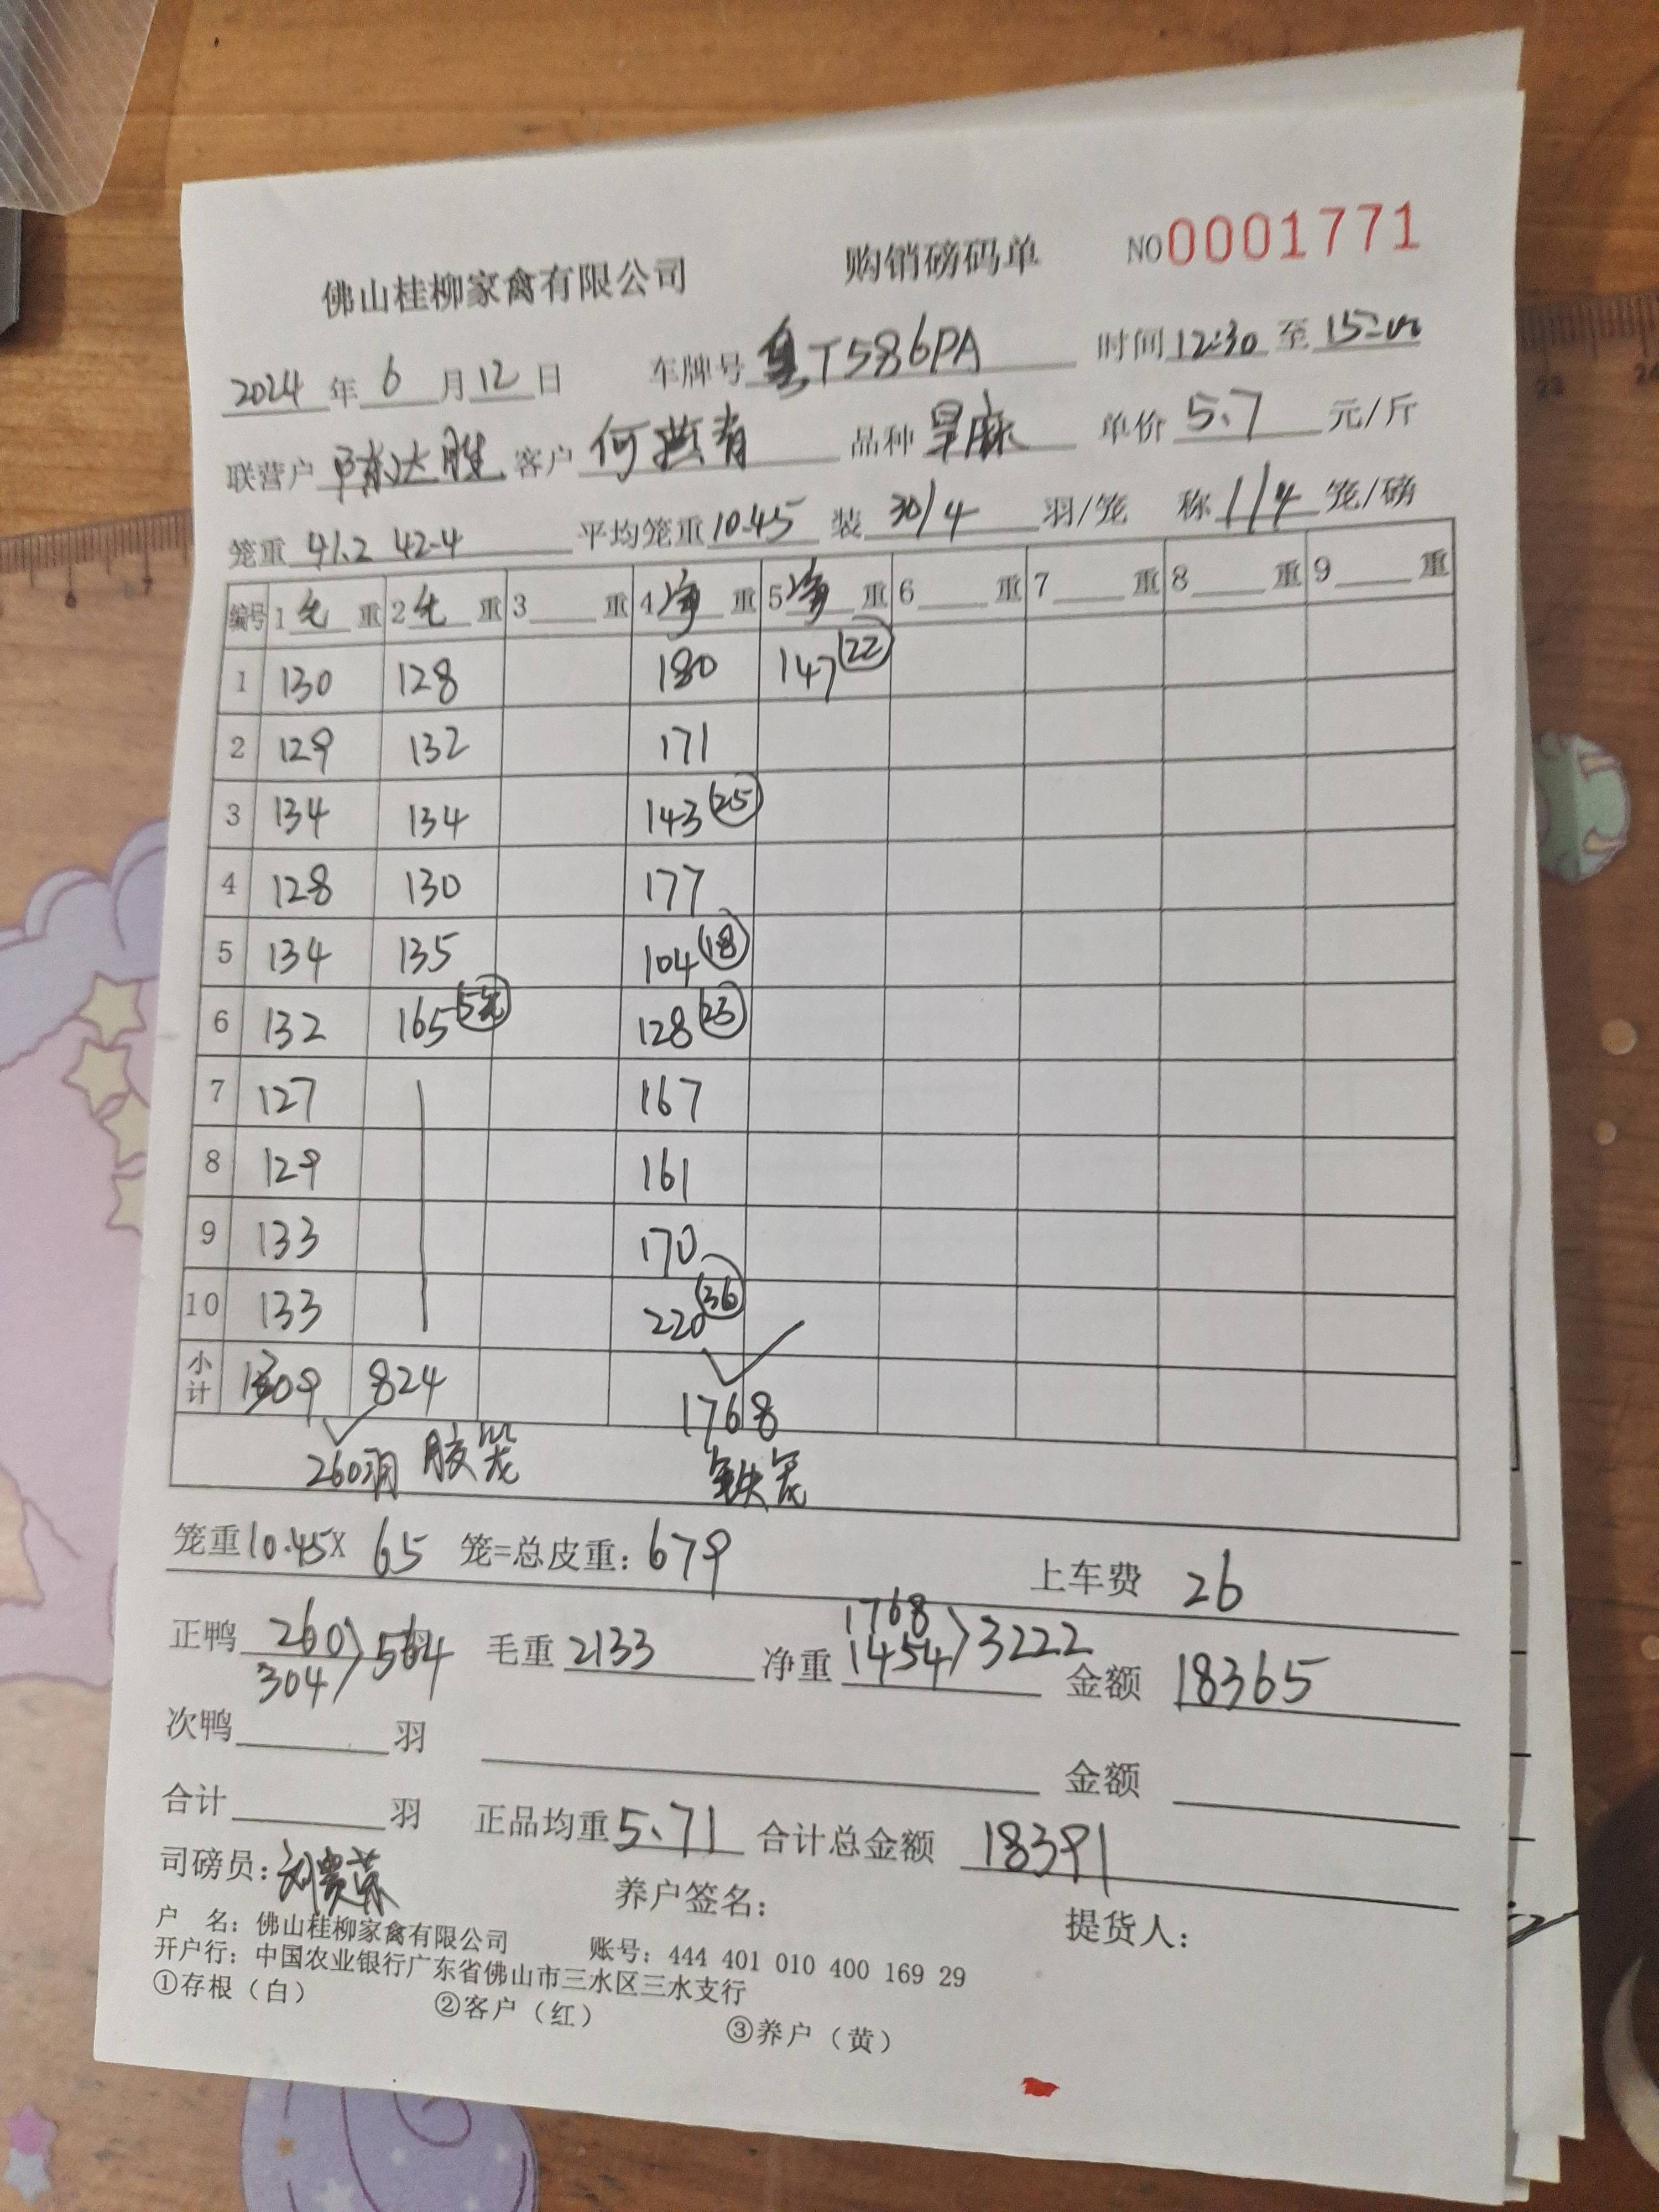 佛山桂柳家禽有限公司 购销磅码单 NO 0001771
2024 年 6 月 12 日 车牌号 粤T586PA 时间 12:30 至 15:00
联营户 陈达胜 客户 何 有 品种 旱麻 单价 5.7 元/斤
笼重 41.2 42.4 平均笼重 10.45 装 30/4 羽/笼 称 1/4 笼/磅
编号 1 毛 重 2 毛 重 3 重 4 净 重 5 净 重 6 重 7 重 8 重 9 重
1 130 128 180 147 22
2 129 132 171
3 134 134 143 25
4 128 130 177
5 134 135 104 18
6 132 165 5笼 128 23
7 127 167
8 129 161
9 133 170
10 133 220 36
小计 1309 824 1768
260羽 胶笼 铁笼
笼重 10.45 X 65 笼=总皮重: 679 上车费 26
正鸭 260 304 564 毛重 2133 净重 1768 1454 3222 金额 18365
次鸭 羽 金额
合计 羽 正品均重 5.71 合计总金额 18391
司磅员: 刘贵荣 养户签名: 提货人:
户 名: 佛山桂柳家禽有限公司 账号: 444 401 010 400 169 29
开户行: 中国农业银行广东省佛山市三水区三水支行
①存根（白） ②客户（红） ③养户（黄）